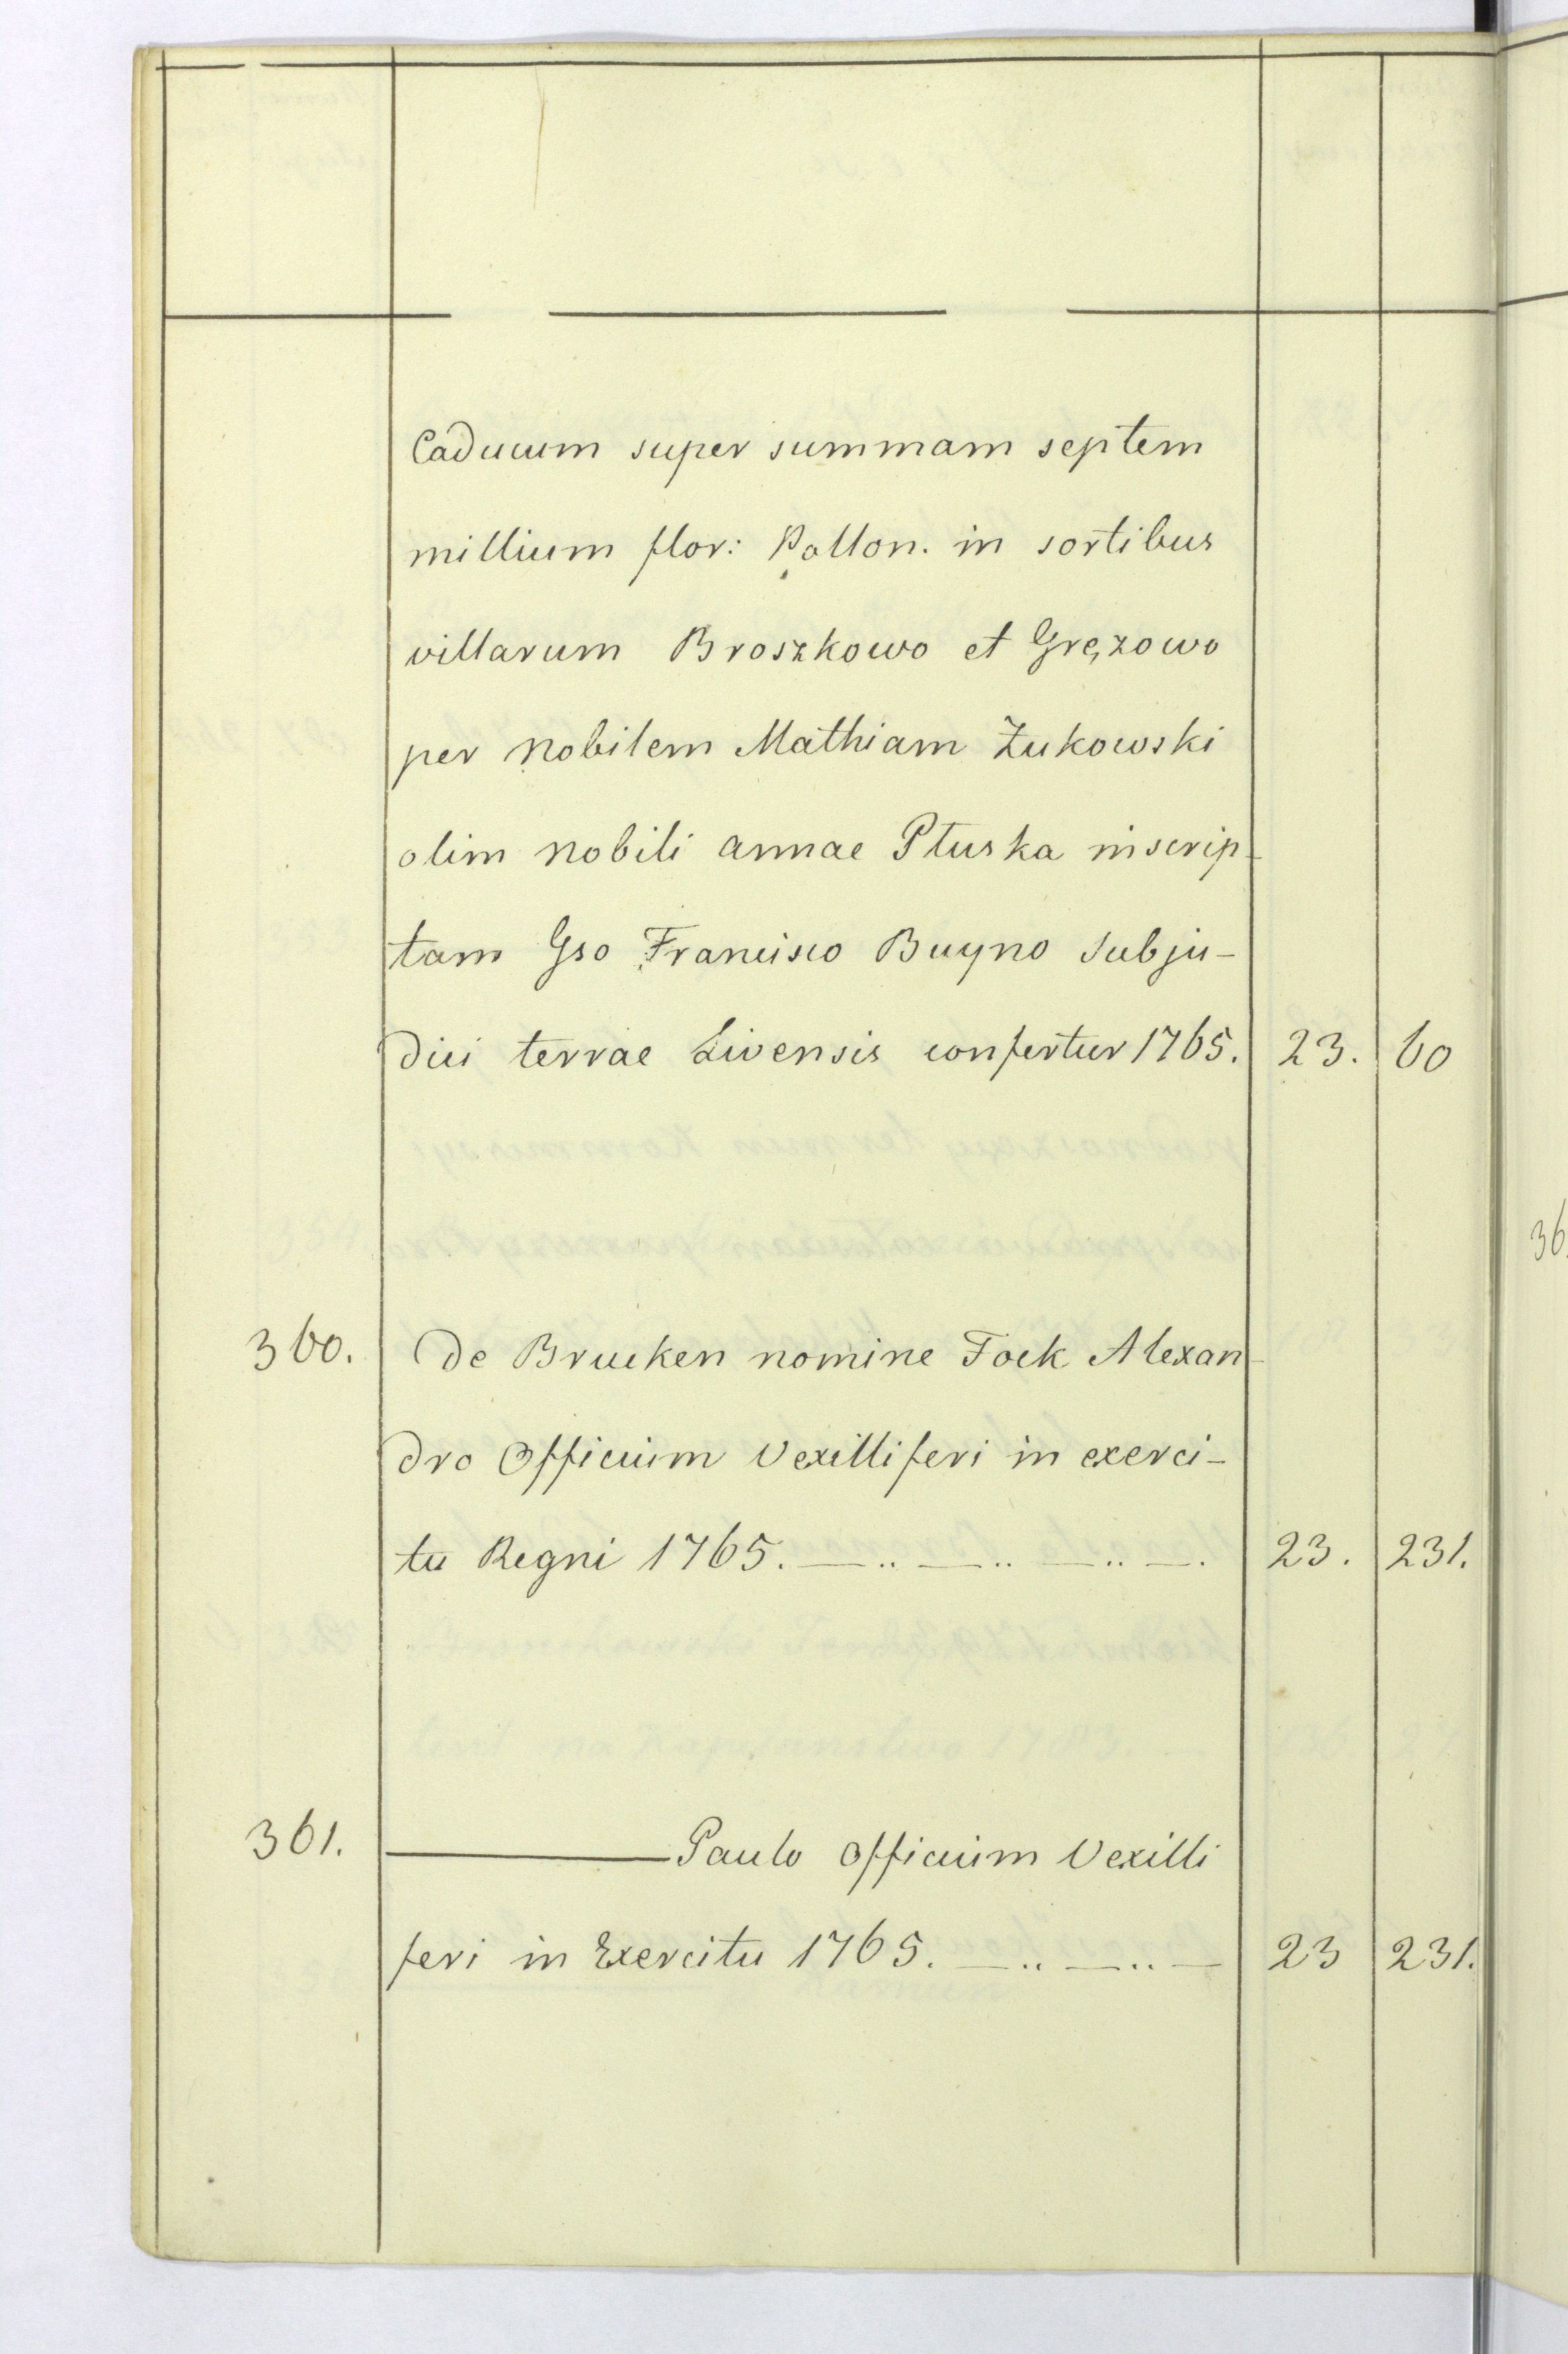 Caducum super summam septem
millium flor: Pollon. in sortibus
villarum Broszkowo et Gręzowo
per Nobilem Mathiam Żukowski
olim Nobili annae Ptuska inscrip-
tam Gso Francisco Buyno Subju-
dici terrae Livensis confertur 1765. 23. 60
360. De Brucken nomine Fock Alexan-
dro Officium Vexilliferi in exerci-
tu Regni 1765. —.. —.. —.. —. 23. 231.
361. ——— Paulo Officium Vexilli
feri in Exercitu 1765. —.. —.. — 23 231.
36